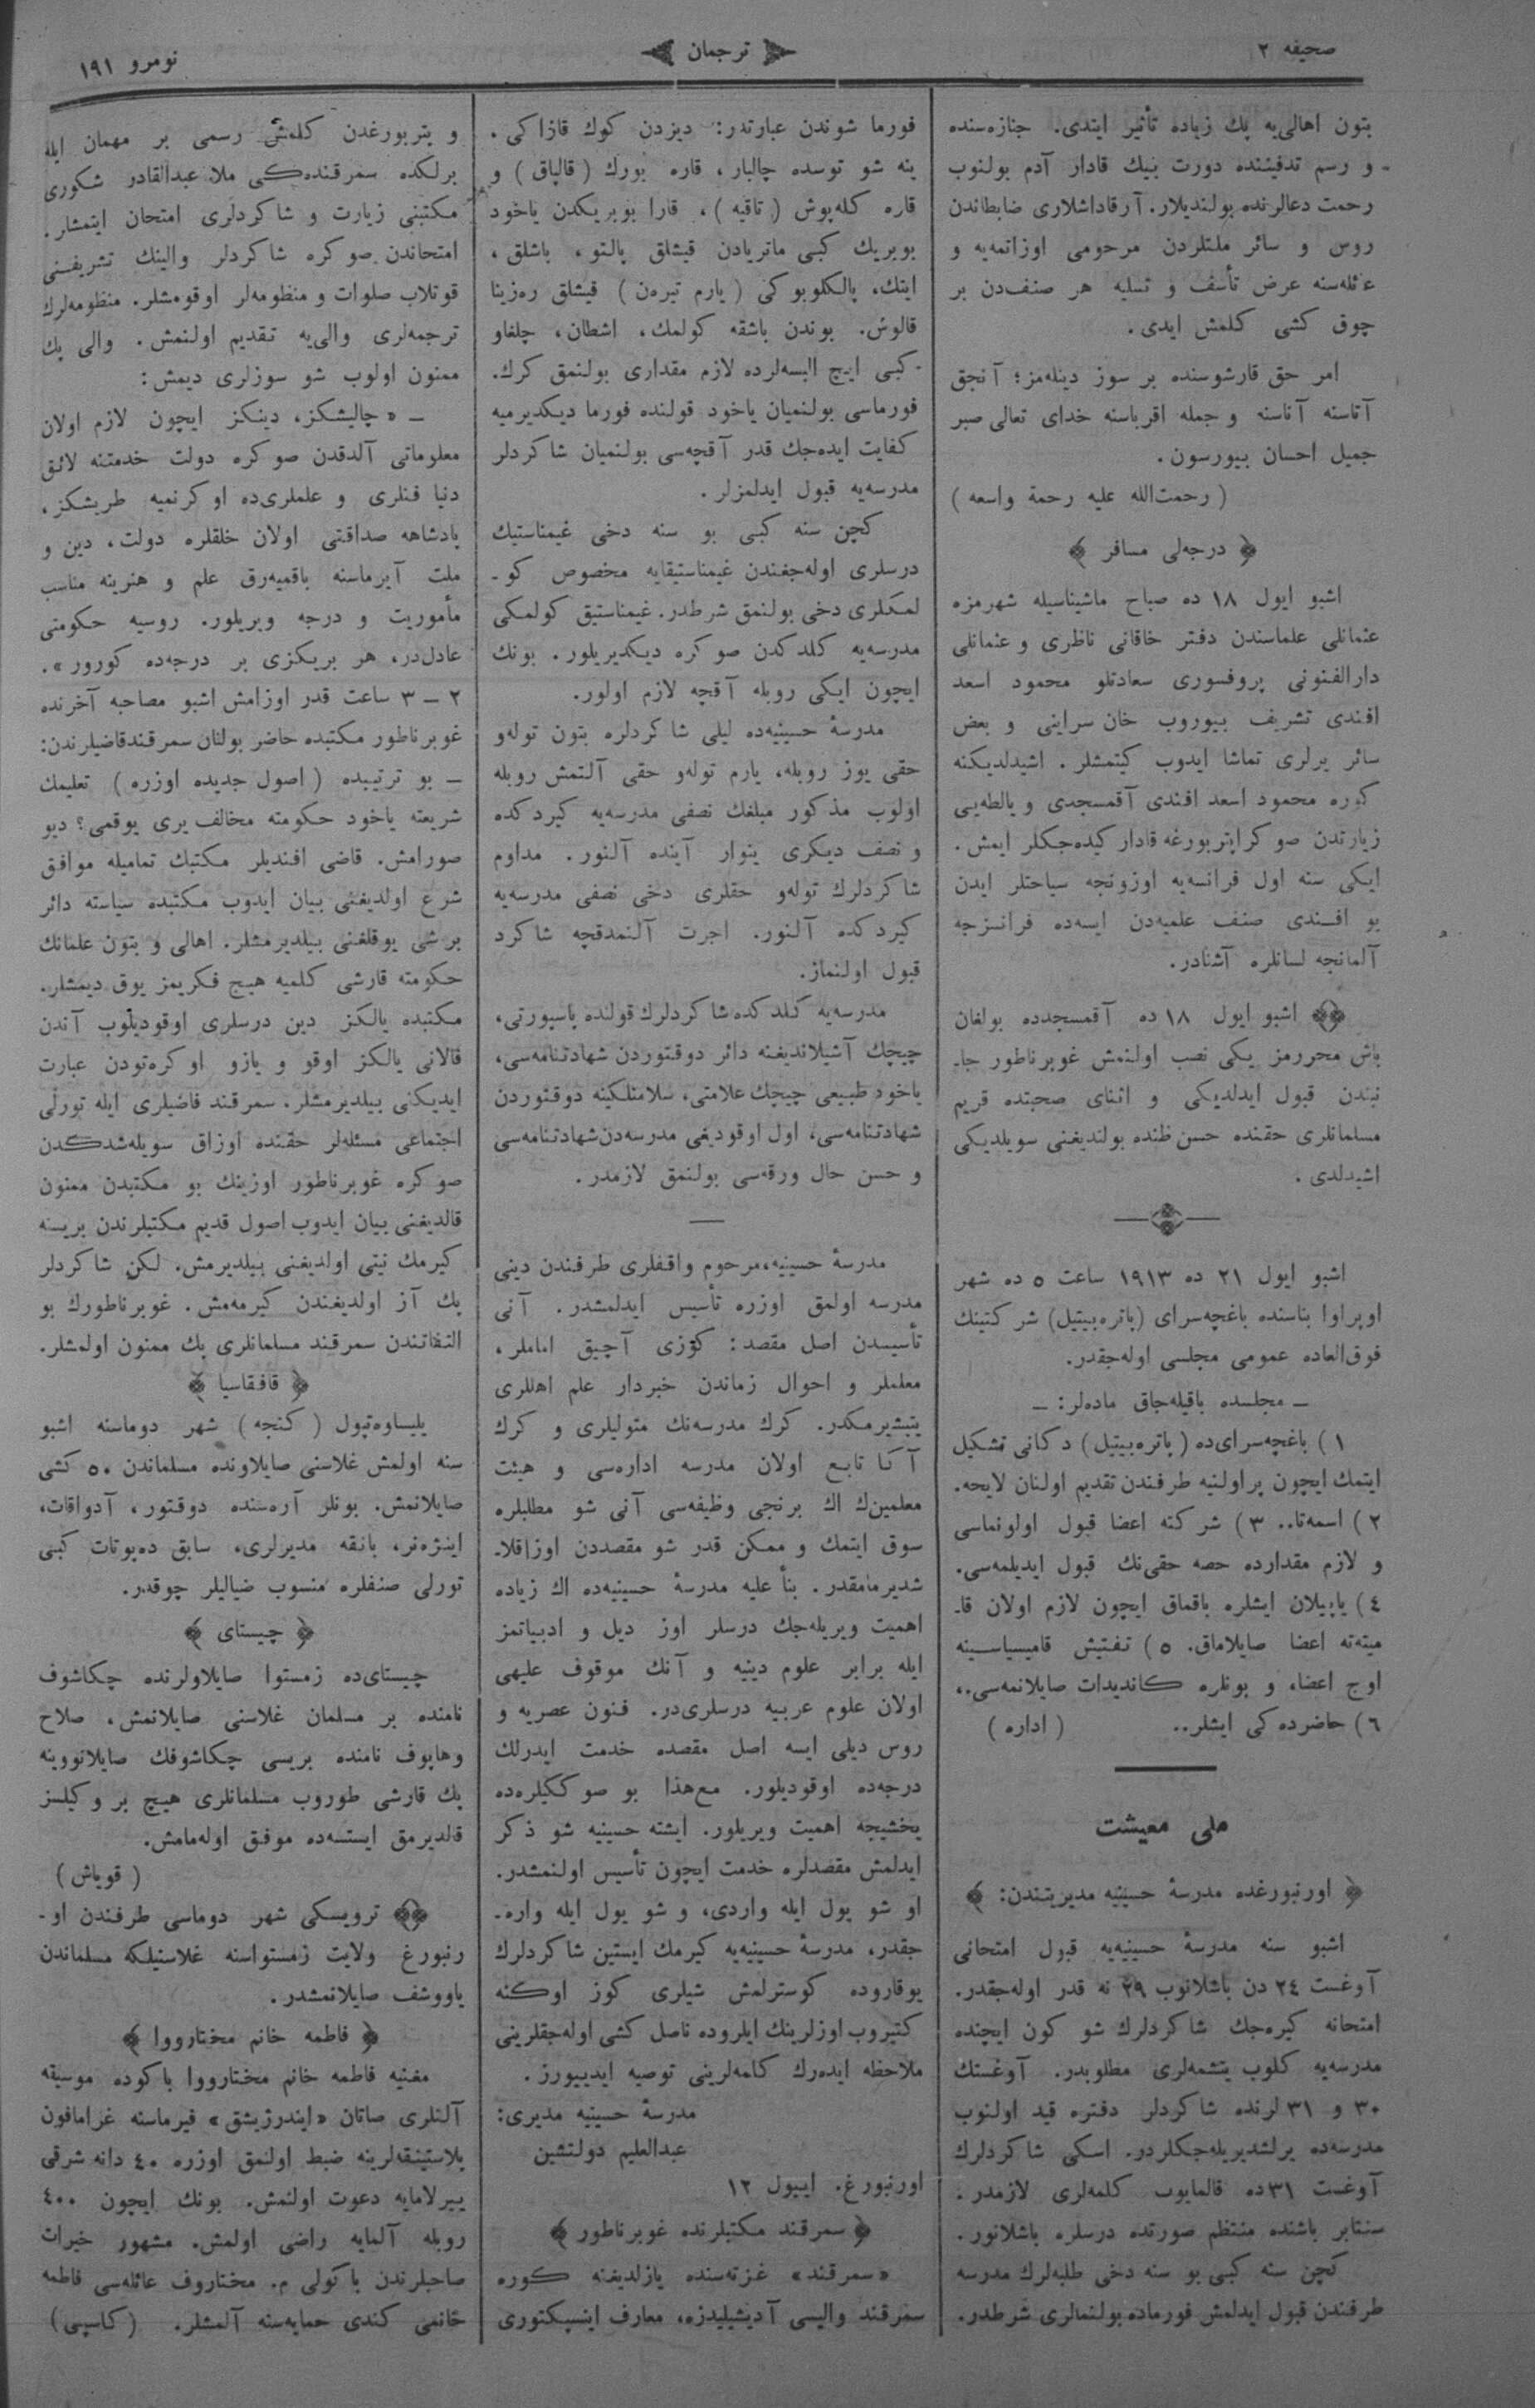 صحیفه ٢
ترجمان
نومرو ١٩١
بتون اهالی‌یه پك زیاده تأثیر ایتدی. جنازه‌سنده
و رسم تدفیننده دورت بیك قادار آدم بولنوب
رحمت دعالرنده بولندیلار. آرقاداشلاری ضابطاندن
روس و سائر ملتلردن مرحومی اوزاتمه‌یه و
عائله‌سنه عرض تأسف و تسلیه هر صنف‌دن بر
چوق كشی كلمش ایدی.
امر حق قارشوسنده بر سوز دینله‌مز؛ آنجق
آتاسنه آناسنه و جمله اقرباسنه خدای تعالی صبر
جمیل احسان بیورسون.
( رحمت‌الله علیه رحمة واسعه )
﴿ درجه‌لی مسافر ﴾
اشبو ایول ١٨ ده صباح ماشیناسیله شهرمزه
عثمانلی علماسندن دفتر خاقانی ناظری و عثمانلی
دارالفنونی پروفسوری سعادتلو محمود اسعد
افندی تشریف بیوروب خان سراینی و بعض
سائر یرلری تماشا ایدوب كیتمشلر. اشیدلدیكنه
كوره محمود اسعد افندی آقمسجدی و یالطه‌یی
زیارتدن صوكرا پتربورغه قادار كیده‌جكلر ایمش.
ایكی سنه اول فرانسه‌یه اوزونجه سیاحتلر ایدن
بو افندی صنف علمیه‌دن ایسه‌ده فرانسزجه
آلمانجه لسانلره آشنادر.
﴿﴾ اشبو ایول ١٨ ده آقمسجدده بولغان
باش محررمز یكی نصب اولنمش غوبرناطور جا-
نبندن قبول ایدلدیكی و اثنای صحبتده قریم
مسلمانلری حقنده حسن ظنده بولندیغنی سویلدیكی
اشیدلدی.
اشبو ایول ٢١ ده ١٩١٣ ساعت ٥ ده شهر
اوپراوا بناسنده باغچه‌سرای (پاتره‌بیتیل) شركتینك
فوق‌العاده عمومی مجلسی اوله‌جقدر.
— مجلسده باقیله‌جاق ماده‌لر: —
١) باغچه‌سرای‌ده (پاتره‌بیتیل) دكانی تشكیل
ایتمك ایچون پراولنیه طرفندن تقدیم اولنان لایحه.
٢) اسمه‌تا.. ٣) شركته اعضا قبول اولونماسی
و لازم مقدارده حصه حقی‌نك قبول ایدیلمه‌سی.
٤) یاپیلان ایشلره باقماق ایچون لازم اولان قا-
میته‌ته اعضا صایلاماق. ٥) تفتیش قامیسیاسینه
اوچ اعضا، و بونلره كاندیدات صایلانمه‌سی.،
٦) حاضرده‌كی ایشلر.. ( اداره )
ملی معیشت
﴿ اورنبورغده مدرسهٔ حسینیه مدیریتندن: ﴾
اشبو سنه مدرسهٔ حسینیه‌یه قبول امتحانی
آوغست ٢٤ دن باشلانوب ٢٩ نه قدر اوله‌جقدر.
امتحانه كیره‌جك شاكردلرك شو كون ایچنده
مدرسه‌یه كلوب یتشمه‌لری مطلوبدر. آوغستك
٣٠ و ٣١ لرنده شاكردلر دفتره قید اولنوب
مدرسه‌ده یرلشدیریله‌جكلردر. اسكی شاكردلرك
آوغست ٣١ ده قالمایوب كلمه‌لری لازمدر.
سنتابر باشنده منتظم صورتده درسلره باشلانور.
كچن سنه كبی بو سنه دخی طلبه‌لرك مدرسه
طرفندن قبول ایدلمش فورماده بولنمالری شرطدر.
فورما شوندن عبارتدر: دیزدن كوك قازاكی.
ینه شو توسده چالبار، قاره بورك (قالپاق) و
قاره كله‌پوش (تاقیه)، قارا بوبریكدن یاخود
بوبریك كبی ماتریادن قیشلق پالتو، باشلق،
ایتك، پالكلوبوكی (یارم تیره‌ن) قیشلق ره‌زینا
قالوش. بوندن باشقه كولمك، اشطان، چلغاو
كبی ایچ البسه‌لرده لازم مقداری بولنمق كرك.
فورماسی بولنمیان یاخود قولنده فورما دیكدیرمیه
كفایت ایده‌جك قدر آقچه‌سی بولنمیان شاكردلر
مدرسه‌یه قبول ایدلمزلر.
كچن سنه كبی بو سنه دخی غیمناستیك
درسلری اوله‌جغندن غیمناستیقایه مخصوص كو-
لمكلری دخی بولنمق شرطدر. غیمناستیق كولمكی
مدرسه‌یه كلدكدن صوكره دیكدیریلور. بونك
ایچون ایكی روبله آقچه لازم اولور.
مدرسهٔ حسینیه‌ده لیلی شاكردلره بتون توله‌و
حقی یوز روبله، یارم توله‌و حقی آلتمش روبله
اولوب مذكور مبلغك نصفی مدرسه‌یه كیردكده
و نصف دیكری ینوار آینده آلنور. مداوم
شاكردلرك توله‌و حقلری دخی نصفی مدرسه‌یه
كیردكده آلنور. اجرت آلنمدقچه شاكرد
قبول اولنماز.
مدرسه‌یه كلدكده شاكردلرك قولنده پاسپورتی،
چیچك آشیلاندیغنه دائر دوقتوردن شهادتنامه‌سی،
یاخود طبیعی چیچك علامتی، سلامتلكینه دوقتوردن
شهادتنامه‌سی، اول اوقودیغی مدرسه‌دن شهادتنامه‌سی
و حسن حال ورقه‌سی بولنمق لازمدر.
مدرسهٔ حسینیه، مرحوم واقفلری طرفندن دینی
مدرسه اولمق اوزره تأسیس ایدلمشدر. آنی
تأسیسدن اصل مقصد: كوزی آچیق اماملر،
معلملر و احوال زماندن خبردار علم اهللری
یتیشیرمكدر. كرك مدرسه‌نك متولیلری و كرك
آكا تابع اولان مدرسه اداره‌سی و هیئت
معلمین‌ك اك برنجی وظیفه‌سی آنی شو مطلبلره
سوق ایتمك و ممكن قدر شو مقصددن اوزاقلا-
شدیرمامقدر. بنأ علیه مدرسهٔ حسینیه‌ده اك زیاده
اهمیت ویریله‌جك درسلر اوز دیل و ادبیاتمز
ایله برابر علوم دینیه و آنك موقوف علیهی
اولان علوم عربیه درسلری‌در. فنون عصریه و
روس دیلی ایسه اصل مقصده خدمت ایدرلك
درجه‌ده اوقودیلور. مع‌هذا بو صوككیلره‌ده
یخشیجه اهمیت ویریلور. ایشته حسینیه شو ذكر
ایدلمش مقصدلره خدمت ایچون تأسیس اولنمشدر.
او شو یول ایله واردی، و شو یول ایله واره-
جقدر، مدرسهٔ حسینیه‌یه كیرمك ایستین شاكردلرك
یوقاروده كوسترلمش شیلری كوز اوكنه
كتیروب اوزلرینك ایلروده ناصل كشی اوله‌جقلرینی
ملاحظه ایده‌رك كلمه‌لرینی توصیه ایدییورز.
مدرسهٔ حسینیه مدیری:
عبدالعلیم دولتشین
اورنبورغ. اییول ١٢
﴿ سمرقند مكتبلرنده غوبرناطور ﴾
«سمرقند» غزته‌سنده یازلدیغنه كوره
سمرقند والیسی آدیشیلیدزه، معارف اینسپكتوری
و پتربورغدن كلمش رسمی بر مهمان ایله
برلكده سمرقنده‌كی ملا عبدالقادر شكوری
مكتبنی زیارت و شاكردلری امتحان ایتمشلر.
امتحاندن صوكره شاكردلر والینك تشریفنی
قوتلاب صلوات و منظومه‌لر اوقومشلر. منظومه‌لرك
ترجمه‌لری والی‌یه تقدیم اولنمش. والی پك
ممنون اولوب شو سوزلری دیمش:
— « چالیشكز، دینكز ایچون لازم اولان
معلوماتی آلدقدن صوكره دولت خدمتنه لائق
دنیا فنلری و علملری‌ده اوكرنمیه طریشكز،
پادشاهه صداقتی اولان خلقلره دولت، دین و
ملت آیرماسنه باقمیه‌رق علم و هنرینه مناسب
مأموریت و درجه ویریلور. روسیه حكومتی
عادل‌در، هر بریكزی بر درجه‌ده كورور».
٢ — ٣ ساعت قدر اوزامش اشبو مصاحبه آخرنده
غوبرناطور مكتبده حاضر بولنان سمرقندقاضیلرندن:
— بو ترتیبده (اصول جدیده اوزره) تعلیمك
شریعته یاخود حكومته مخالف یری یوقمی؟ دیو
صورامش. قاضی افندیلر مكتبك تمامیله موافق
شرع اولدیغنی بیان ایدوب مكتبده سیاسته دائر
برشی یوقلغنی بیلدیرمشلر. اهالی و بتون علمانك
حكومته قارشی كلمیه هیچ فكریمز یوق دیمشلر.
مكتبده یالكز دین درسلری اوقودیلوب آندن
قالانی یالكز اوقو و یازو اوكره‌تودن عبارت
ایدیكنی بیلدیرمشلر. سمرقند قاضیلری ایله تورلی
اجتماعی مسئله‌لر حقنده اوزاق سویله‌شدكدن
صوكره غوبرناطور اوزینك بو مكتبدن ممنون
قالدیغنی بیان ایدوب اصول قدیم مكتبلرندن بریسنه
كیرمك نیتی اولدیغنی بیلدیرمش. لكن شاكردلر
پك آز اولدیغندن كیرمه‌مش. غوبرناطورك بو
التفاتندن سمرقند مسلمانلری پك ممنون اولمشلر.
﴿ قافقاسیا ﴾
یلیساوه‌تپول (كنجه) شهر دوماسنه اشبو
سنه اولمش غلاسنی صایلاونده مسلماندن ٥٠ كشی
صایلانمش. بونلر آره‌سنده دوقتور، آدواقات،
اینژه‌نر، بانقه مدیرلری، سابق ده‌پوتات كبی
تورلی صنفلره منسوب ضیالیلر چوقدر.
﴿ چیستای ﴾
چیستای‌ده زمستوا صایلاولرنده چكاشوف
نامنده بر مسلمان غلاسنی صایلانمش، صلاح
وهاپوف نامنده بریسی چكاشوفك صایلانووینه
پك قارشی طوروب مسلمانلری هیچ بر وكیلسز
قالدیرمق ایستسه‌ده موفق اوله‌مامش.
( قویاش )
﴿﴾ ترویسكی شهر دوماسی طرفندن او-
رنبورغ ولایت زمستواسنه غلاسنیلكه مسلماندن
یاووشف صایلانمشدر.
﴿ فاطمه خانم مختارووا ﴾
مغنیه فاطمه خانم مختارووا باكوده موسیقه
آلتلری صاتان «ایندرژیشق» فیرماسنه غرامافون
پلاستینقه‌لرینه ضبط اولنمق اوزره ٤٠ دانه شرقی
ییرلامایه دعوت اولنمش. بونك ایچون ٤٠٠
روبله آلمایه راضی اولمش. مشهور خیرات
صاحبلرندن باكولی م. مختاروف عائله‌سی فاطمه
خانمی كندی حمایه‌سنه آلمشلر. (كاسپی)